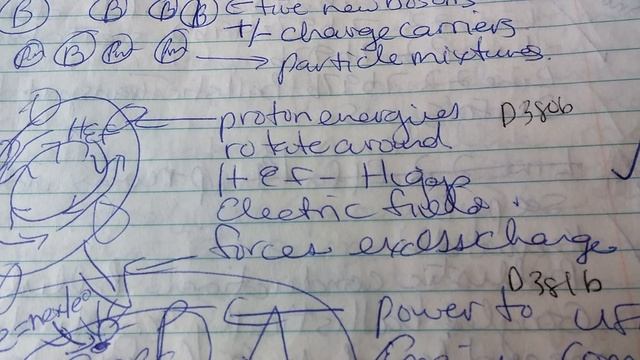 B B B B five new bosons
+/- charge carriers
B particle mixtures.
HEF proton energies D380b
rotate around
HEF - Higgs
Electric fields.
forces excess charge
D381b
power to